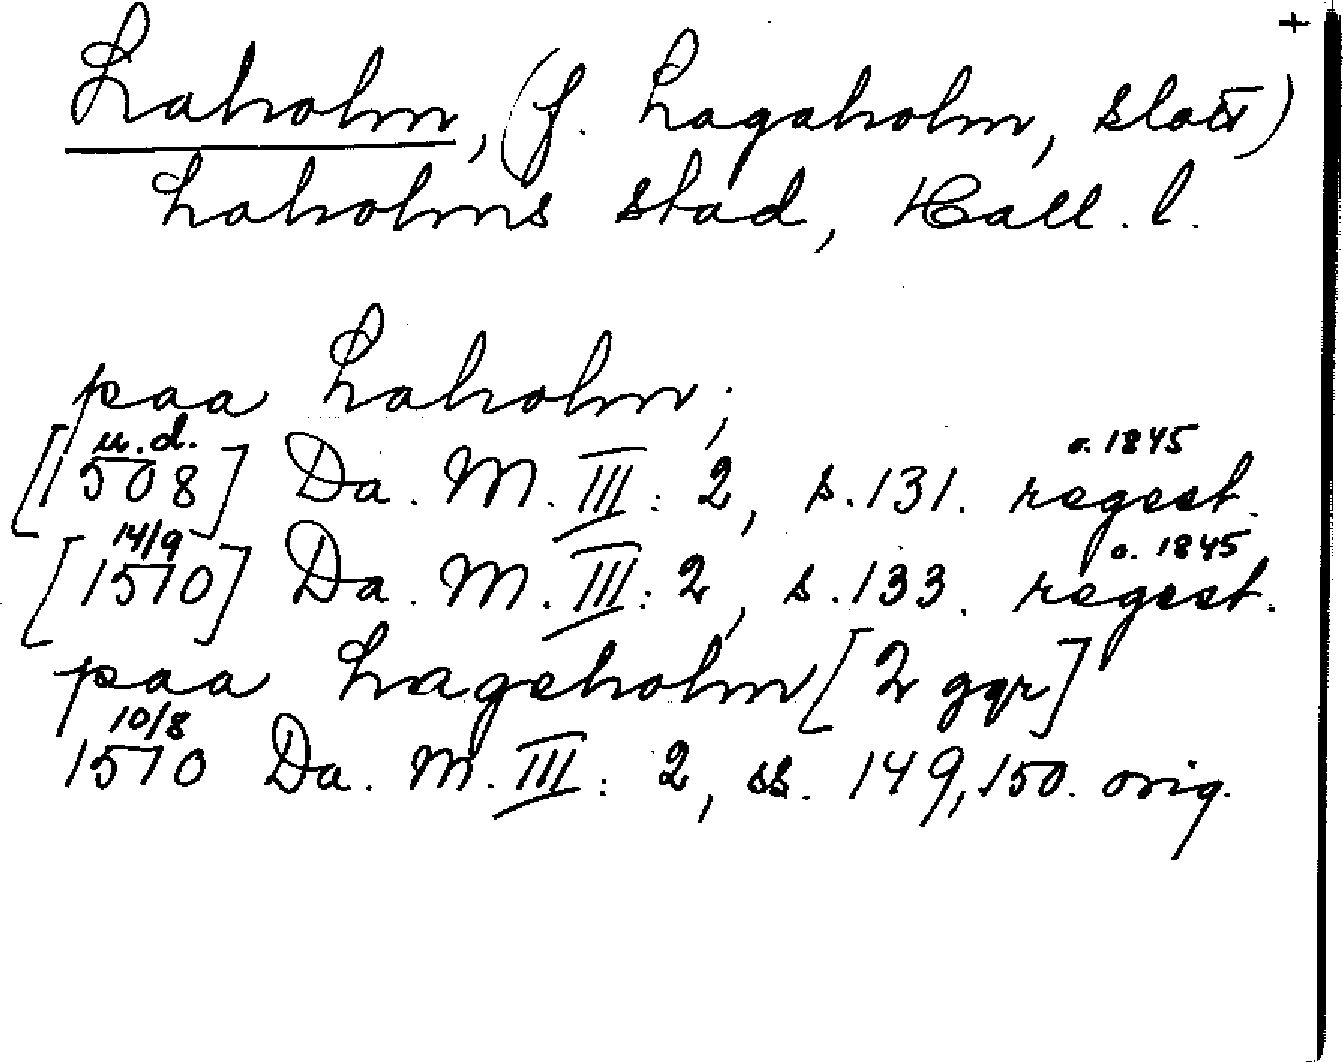 +
Laholm, (f. Lagaholm, slott)
Laholms stad, Hall. l.
paa Laholm;
[u.d. 1508] Da. M. III: 2, s. 131. regest. o. 1845
[14/9 1510] Da. M. III: 2, s. 133. regest. o. 1845
paa Lageholm [2 ggr]
10/8 1510 Da. M. III: 2, ss. 149, 150. orig.